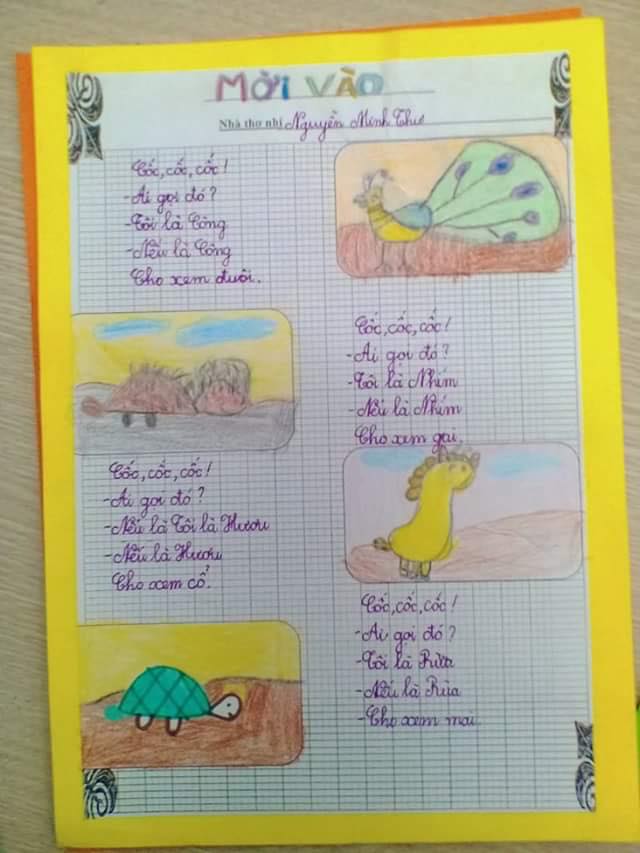 MỜI VÀO
Nhà thơ nhí Nguyễn Minh Thư
Cốc, cốc, cốc!
- Ai gọi đó?
- Tôi là Công
- Nếu là Công
Cho xem đuôi.
Cốc, cốc, cốc!
- Ai gọi đó?
- Tôi là Nhím
- Nếu là Nhím
Cho xem gai.
Cốc, cốc, cốc!
- Ai gọi đó?
- Nếu là Tôi là Hươu
- Nếu là Hươu
Cho xem cổ.
Cốc, cốc, cốc!
- Ai gọi đó?
- Tôi là Rùa
- Nếu là Rùa
- Cho xem mai.